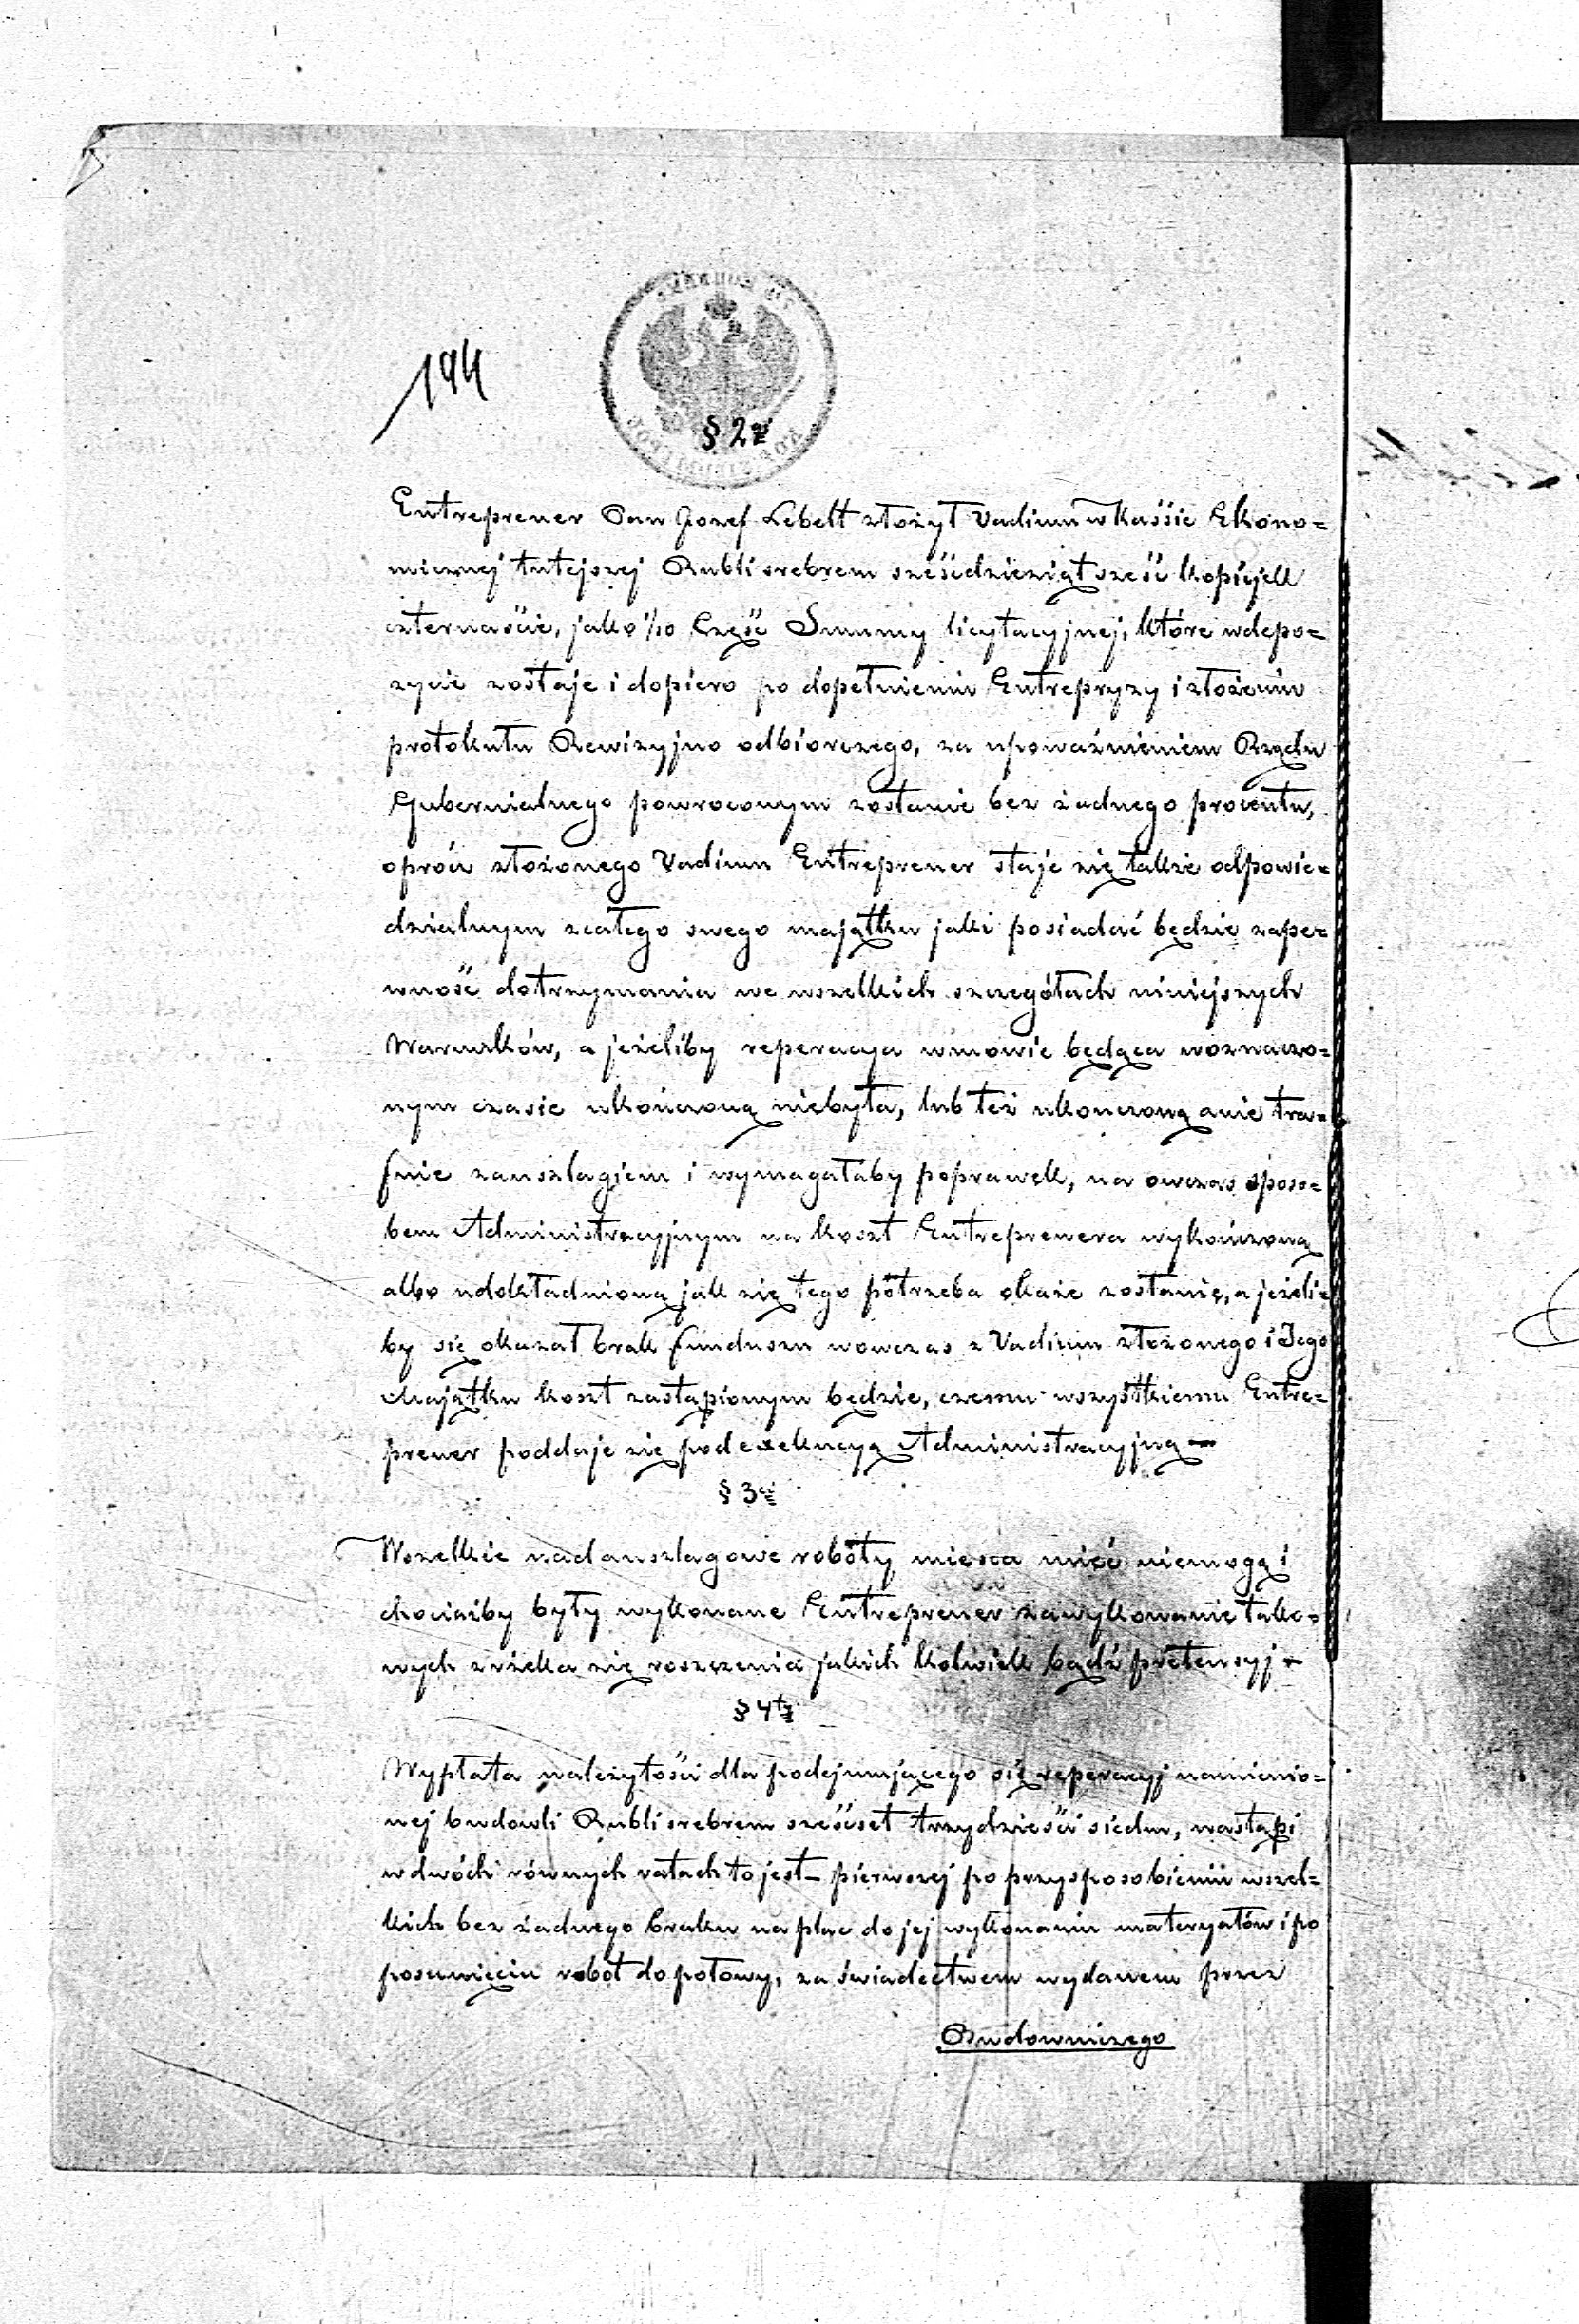 194
§ 2gi
Entreprener Pan Jozef Lebelt złożył Vadium w Kassie Ekono=
micznej tutejszej Rubli srebrem sześćdziesiąt sześć kopiejek
czternaście, jako 1/10 Część Summy licytacyjnej, które wdepo=
zycie zostaje i dopiero po dopełnieniu Entrepryzy i złożeniu
protokułu Rewizyjno odbiorczego, za upoważnieniem Rządu
Gubernialnego powroconym zostanie bez żadnego procentu,
oprócz złożonego Vadium Entreprener staje się także odpowie=
dzialnym zcałego swego majątku jaki posiadać będzie zape=
wność dotrzymania we wszelkich szczegółach niniejszych
Warunków, a jeżeliby reperacya wmowie będąca woznaczo=
nym czasie ukończoną niebyła, lub też ukonczoną anie tra=
fnie zanszlagiem i wymagałaby poprawek, na owczas sposo=
bem Administracyjnym na koszt Entreprenera wykończoną
albo udokładnioną jak się tego potrzeba okaże zostanie, a jeżeli=
by się okazał brak funduszu wowczas z Vadium złożonego i Jego
Majątku koszt zastąpionym będzie, czemu wszystkiemu Entre=
prener poddaje się pod exekucyą Administracyjną —
§ 3ci
Wszelkie nadanszlagowe roboty miesca mieć niemogą i
chociażby były wykonane Entreprener zawykonanie tako=
wych zrzeka się roszczenia jakich kolwiek bądź pretensyj —
§ 4ty
Wypłata należytości dla podejmującego się reperacyj namienio=
nej budowli Rubli srebrem sześćset trzydzieści siedm, nastąpi
w dwóch równych ratach to jest — pierwszej po przysposobieniu wszel=
kich bez żadnego braku na plac do jej wykonania materyałów i po
posunięciu robot do połowy, za świadectwem wydanem przez
Budowniczego